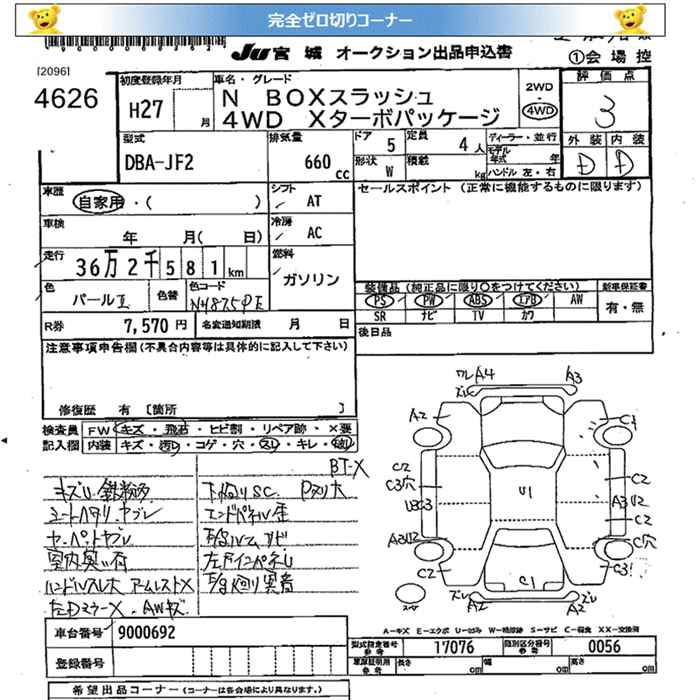 完全ゼロ切りコーナー
JU 宮城 オークション出品申込書
①会場控
[2096]
4626
初度登録年月
H27
月
車名・グレード
N BOXスラッシュ
4WD Xターボパッケージ
2WD
4WD
評価点
3
外装 内装
D D
型式
DBA-JF2
排気量
660 cc
ドア 5
定員 4 人
形状 W
積載 kg
ディーラー・並行
モデル年式 年
ハンドル 左・右
車歴
自家用・( )
シフト
AT
セールスポイント (正常に機能するものに限ります)
車検
年 月( 日)
冷房
AC
走行
36万2千581km
燃料
ガソリン
色
パールⅡ
色替
色コード
NH875PE
装備品 (純正品に限り○をつけてください)
新車保証書
PS PW ABS エアB AW
SR ナビ TV カワ
有・無
R券
7,570 円
名変通知期限 月 日
後日品
注意事項申告欄(不具合内容等は具体的に記入して下さい)
修復歴 有 [箇所 ]
検査員 FW キズ・飛石・ヒビ割・リペア跡・×要
記入欄 内装 キズ・汚れ・コゲ・穴・スレ・キレ・破れ
BT-X
キズU 鉄粉多
シートヘタリ ヤブレ
エンドパネル歪
室内臭い有
ハンドルスレ大 アームレストX
左Dミラー X、AWキズ
ワレ A4
ズレ
A3
A2
C1
C2
C3穴
C2
U3C3
U1
A3U2
C2
A3U2
C穴
C2
C1
C3
ズレ
A2
ズレ
A2
スペア
A-キズ E-エクボ U-凹み W-補修跡 S-サビ C-腐食 XX-交換済
車台番号
9000692
型式指定番号 参考
17076
類別区分番号 参考
0056
登録番号
車庫証明用 参考
長さ cm
幅 cm
高さ cm
希望出品コーナー (コーナーは各会場により異なります。)